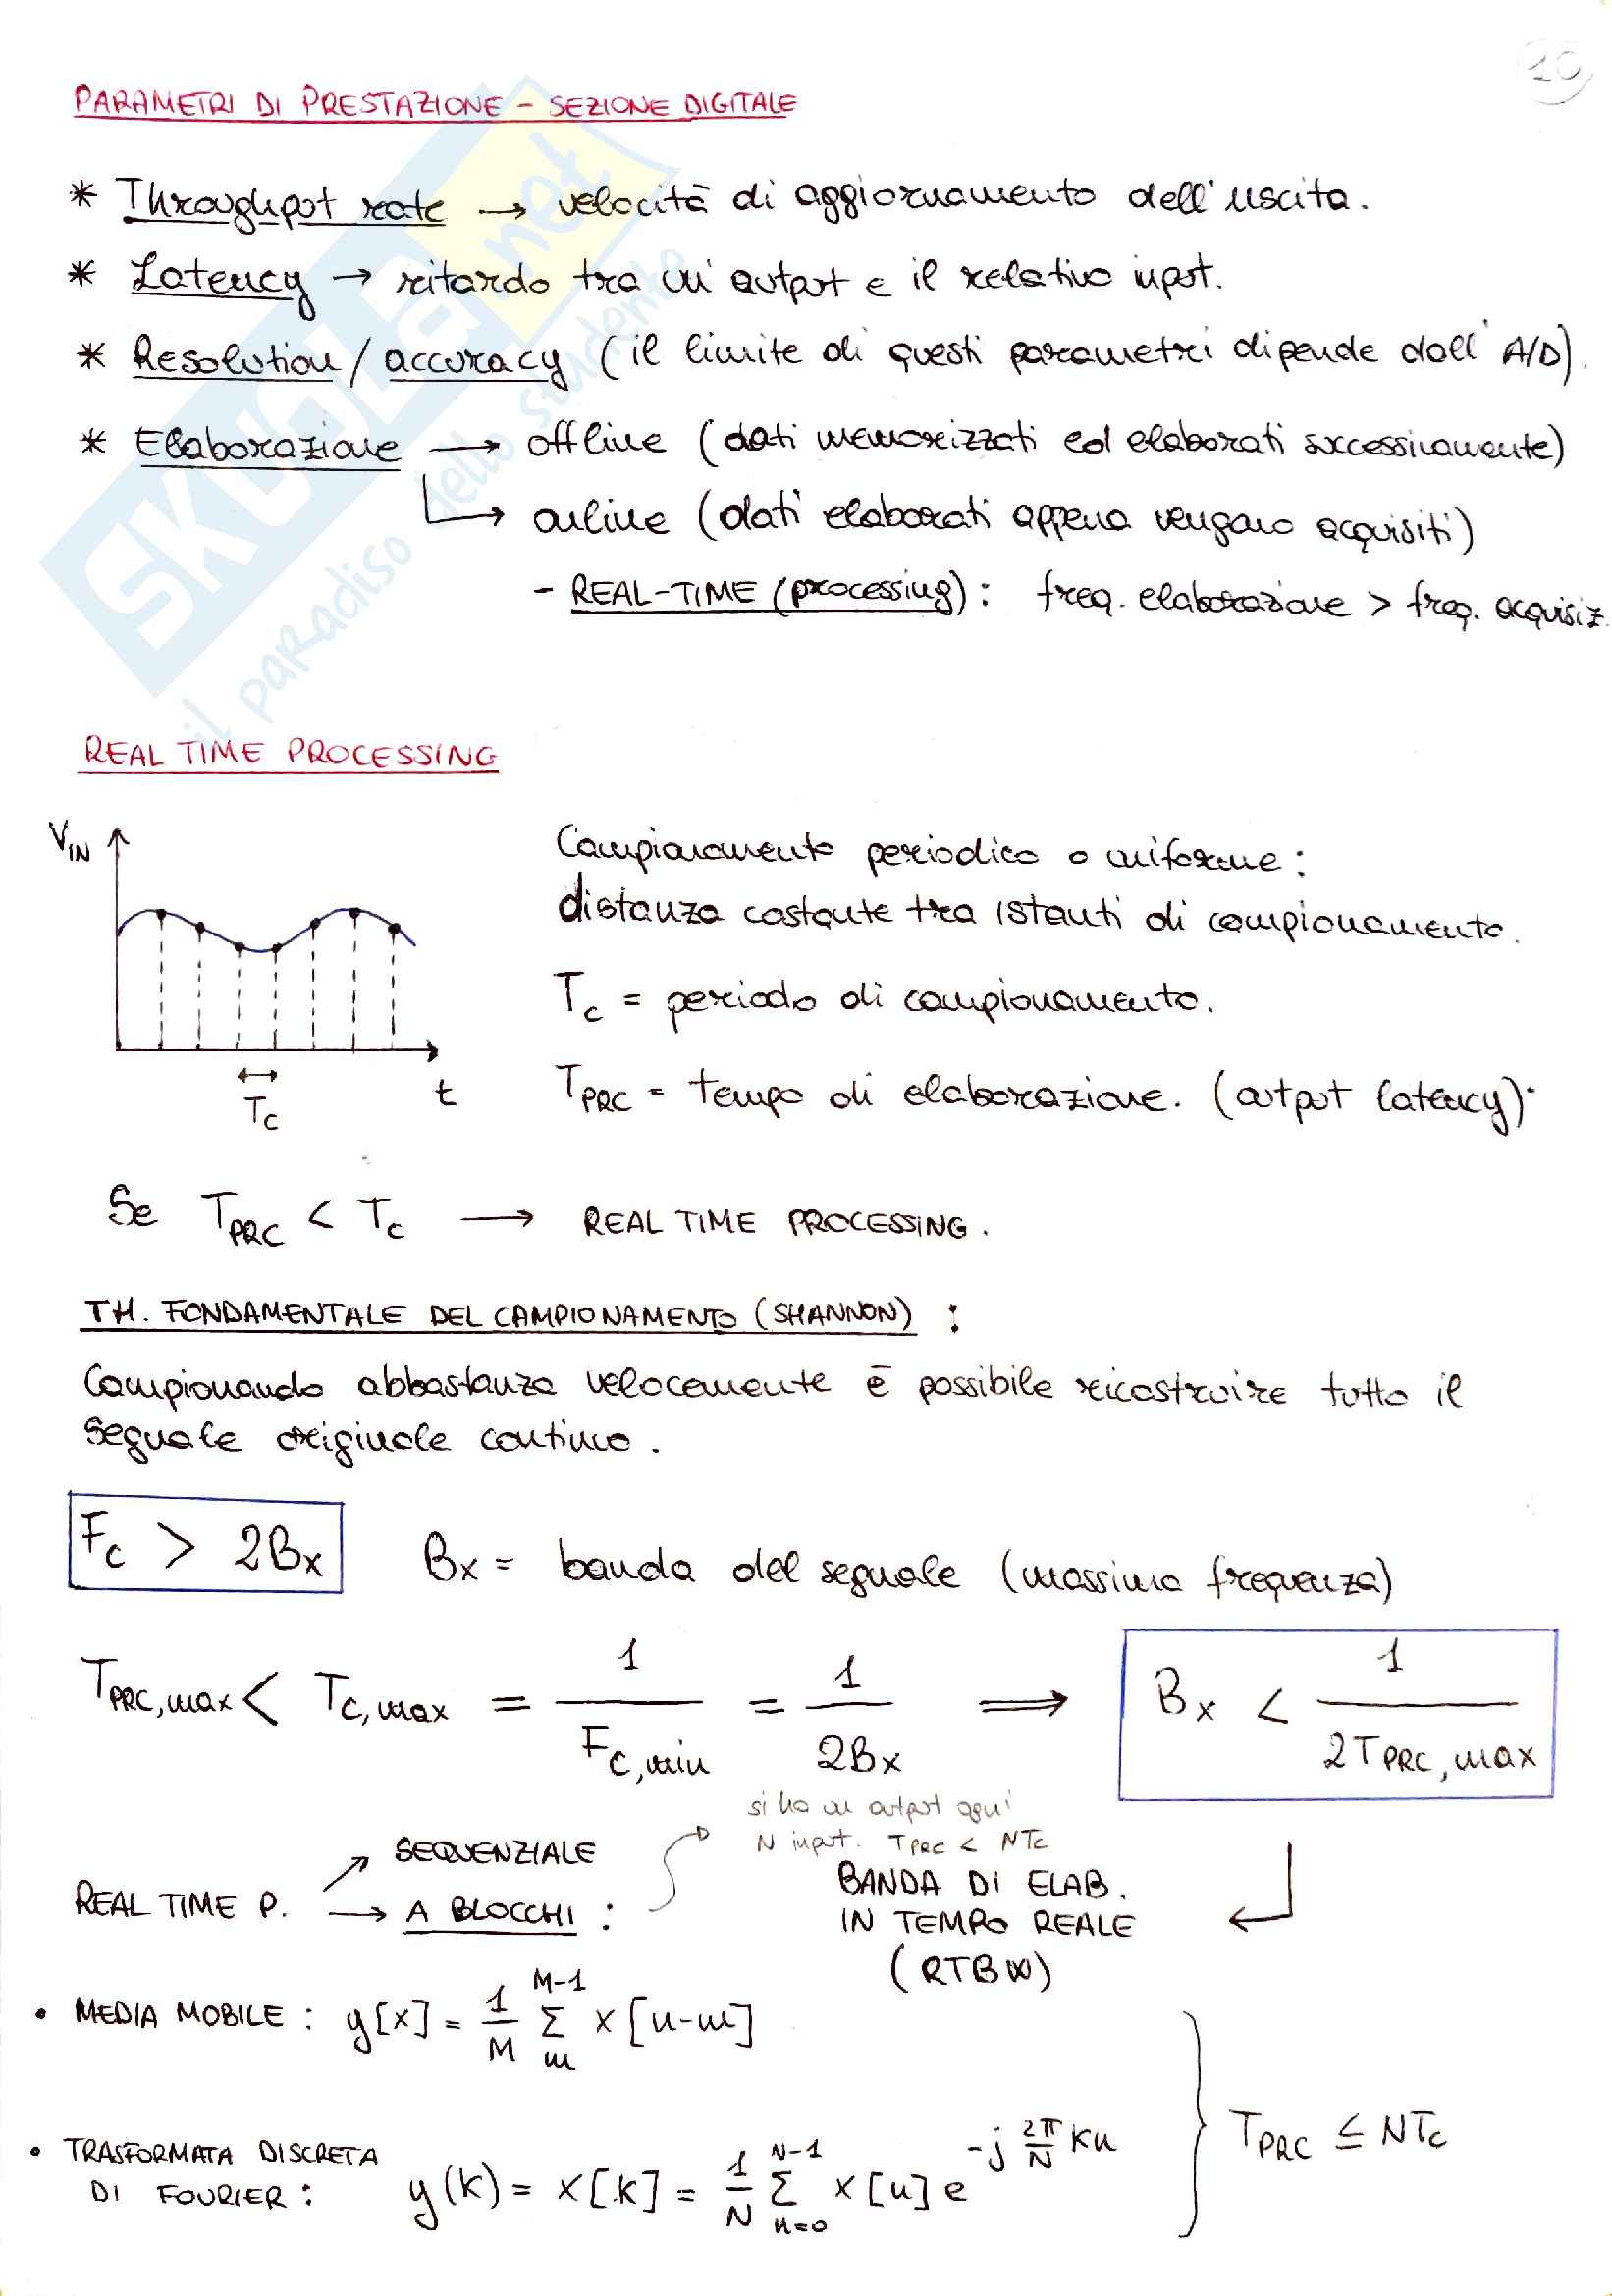 10
PARAMETRI DI PRESTAZIONE - SEZIONE DIGITALE
* Throughput rate → velocità di aggiornamento dell'uscita.
* Latency → ritardo tra un output e il relativo input.
* Resolution / accuracy (il limite di questi parametri dipende dall'A/D).
* Elaborazione → offline (dati memorizzati ed elaborati successivamente)
→ online (dati elaborati appena vengano acquisiti)
- REAL-TIME (processing): freq. elaborazione > freq. acquisiz.
SKUOLA.net
il paradiso dello studente
REAL TIME PROCESSING
V_IN
t
T_C
Campionamento periodico o uniforme:
distanza costante tra istanti di campionamento.
T_C = periodo di campionamento.
T_PRC = tempo di elaborazione. (output latency).
Se T_PRC < T_C → REAL TIME PROCESSING.
TH. FONDAMENTALE DEL CAMPIONAMENTO (SHANNON) :
Campionando abbastanza velocemente è possibile ricostruire tutto il
segnale originale continuo.
F_C > 2B_X B_X = banda del segnale (massima frequenza)
T_PRC,max < T_C,max = 1/F_C,min = 1/2B_X ⟹ B_X < 1/2T_PRC,max
si ha un output ogni
N input. T_PRC < NT_C
REAL TIME P. → SEQUENZIALE
→ A BLOCCHI :
BANDA DI ELAB.
IN TEMPO REALE
(RTBW)
• MEDIA MOBILE : y[x] = 1/M Σ_m^{M-1} x[n-m]
• TRASFORMATA DISCRETA
DI FOURIER : y(k) = X[k] = 1/N Σ_{n=0}^{N-1} x[n] e^{-j 2π/N kn}
T_PRC ≤ NT_C